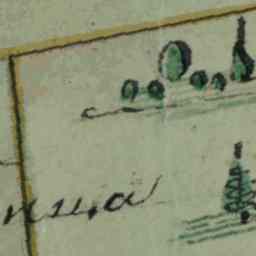 ница